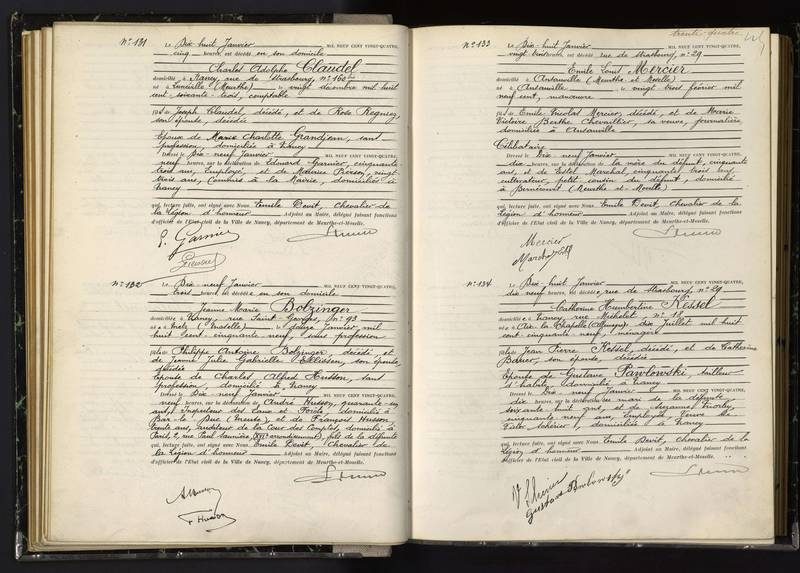 N° 131
Le Dix-huit Janvier MIL NEUF CENT VINGT-QUATRE,
cinq heures, est décédé en son domicile
Charles Adolphe Claudel
domicilié à Nancy, rue de Strasbourg, n° 160 bis
né à Lunéville (Meurthe) le vingt décembre mil huit
cent soixante-trois, comptable
fils de Joseph Claudel, décédé, et de Rose
son épouse, décédée
Epoux de Marie Charlotte Grandjean, sans
profession, domiciliée à Nancy
Dressé le Dix-neuf Janvier MIL NEUF CENT VINGT-QUATRE,
neuf heures, sur la déclaration de Edouard Garnier, cinquante-
trois ans, Employé, et de Maurice Pierson, vingt-
trois ans, Commis à la Mairie, domiciliés à
Nancy
qui, lecture faite, ont signé avec Nous Emile Devit, Chevalier de
la Légion d'honneur Adjoint au Maire, délégué faisant fonctions
d'officier de l'Etat civil de la Ville de Nancy, département de Meurthe-et-Moselle.
E. Garnier
N° 132
Le Dix-neuf Janvier MIL NEUF CENT VINGT-QUATRE,
trois heures, est décédée en son domicile
Jeanne Marie Bolzinger
domiciliée à Nancy, rue Saint-Georges, n° 93
née à Metz (Moselle) le douze janvier mil
huit cent cinquante-neuf, sans profession
fille de Philippe Antoine Bolzinger, décédé et
de Jeanne Julie Gabrielle Ellissen, son épouse,
décédée
Epouse de Charles Alfred Husson, sans
profession, domicilié à Nancy
Dressé le Dix-neuf Janvier MIL NEUF CENT VINGT-QUATRE,
neuf heures, sur la déclaration de André Husson, quarante-
ans, Inspecteur des Eaux et Forêts, domicilié à
Bar-le-Duc (Meuse) et de François Husson,
trente ans, Auditeur à la Cour des Comptes, domicilié à
Paris, 2, rue Paul Saunière, (XVIe arrondissement), fils de la défunte
qui, lecture faite, ont signé avec Nous Emile Devit, Chevalier de
la Légion d'honneur Adjoint au Maire, délégué faisant fonctions
d'officier de l'Etat civil de la Ville de Nancy, département de Meurthe-et-Moselle.
A Husson
F Husson
trente-quatre
N° 133
Le Dix-huit Janvier MIL NEUF CENT VINGT-QUATRE,
vingt heures, est décédé rue de Strasbourg, n° 29
Emile Louis Mercier
domicilié à Ansauville (Meurthe et Moselle)
né à Ansauville le vingt-trois février mil
neuf cent, manœuvre
fils de Emile Nicolas Mercier, décédé, et de Marie
Victoire Berthe Chevaillier, sa veuve, journalière
domiciliée à Ansauville
Célibataire
Dressé le Dix-neuf Janvier MIL NEUF CENT VINGT-QUATRE,
dix heures, sur la déclaration de la mère du défunt, cinquante
ans, et de Estel Marchal, cinquante-trois ans,
cultivateur, petit-cousin du défunt, domicilié
à Bernécourt (Meurthe et Moselle)
qui, lecture faite, ont signé avec Nous Emile Devit, Chevalier de la
Légion d'honneur Adjoint au Maire, délégué faisant fonctions
d'officier de l'Etat civil de la Ville de Nancy, département de Meurthe-et-Moselle.
Mercier
Marchal Estel
N° 134
Le Dix-huit Janvier MIL NEUF CENT VINGT-QUATRE,
dix-neuf heures, est décédée rue de Strasbourg, n° 29
Catherine Humbertine Kessel
domiciliée à Nancy, rue Michelet, n° 18
née à Aix-la-Chapelle (Allemagne) dix Juillet mil huit
cent cinquante-neuf, ménagère
fille de Jean Pierre Kessel, décédé, et de Catherine
son épouse, décédée
Epouse de Gustave Pawlowski, tailleur
d'habits, domicilié à Nancy
Dressé le Dix-neuf Janvier MIL NEUF CENT VINGT-QUATRE,
dix heures, sur la déclaration du mari de la défunte
soixante-huit ans, et de
cinquante-neuf ans, Employé,
domiciliés à Nancy
qui, lecture faite, ont signé avec Nous Emile Devit, Chevalier de la
Légion d'honneur Adjoint au Maire, délégué faisant fonctions
d'officier de l'Etat civil de la Ville de Nancy, département de Meurthe-et-Moselle.
Gustave Pawlowski